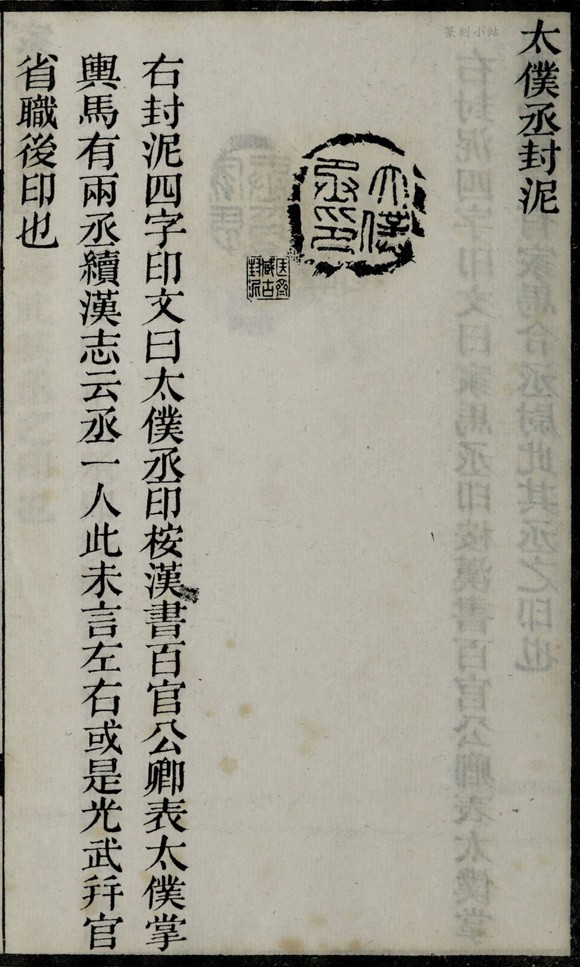 太僕丞封泥
篆刻小站
大僕
丞印
匋齋
臧古
封泥
右封泥四字印文曰太僕丞印桉漢書百官公卿表太僕掌
輿馬有兩丞續漢志云丞一人此未言左右或是光武幷官
省職後印也